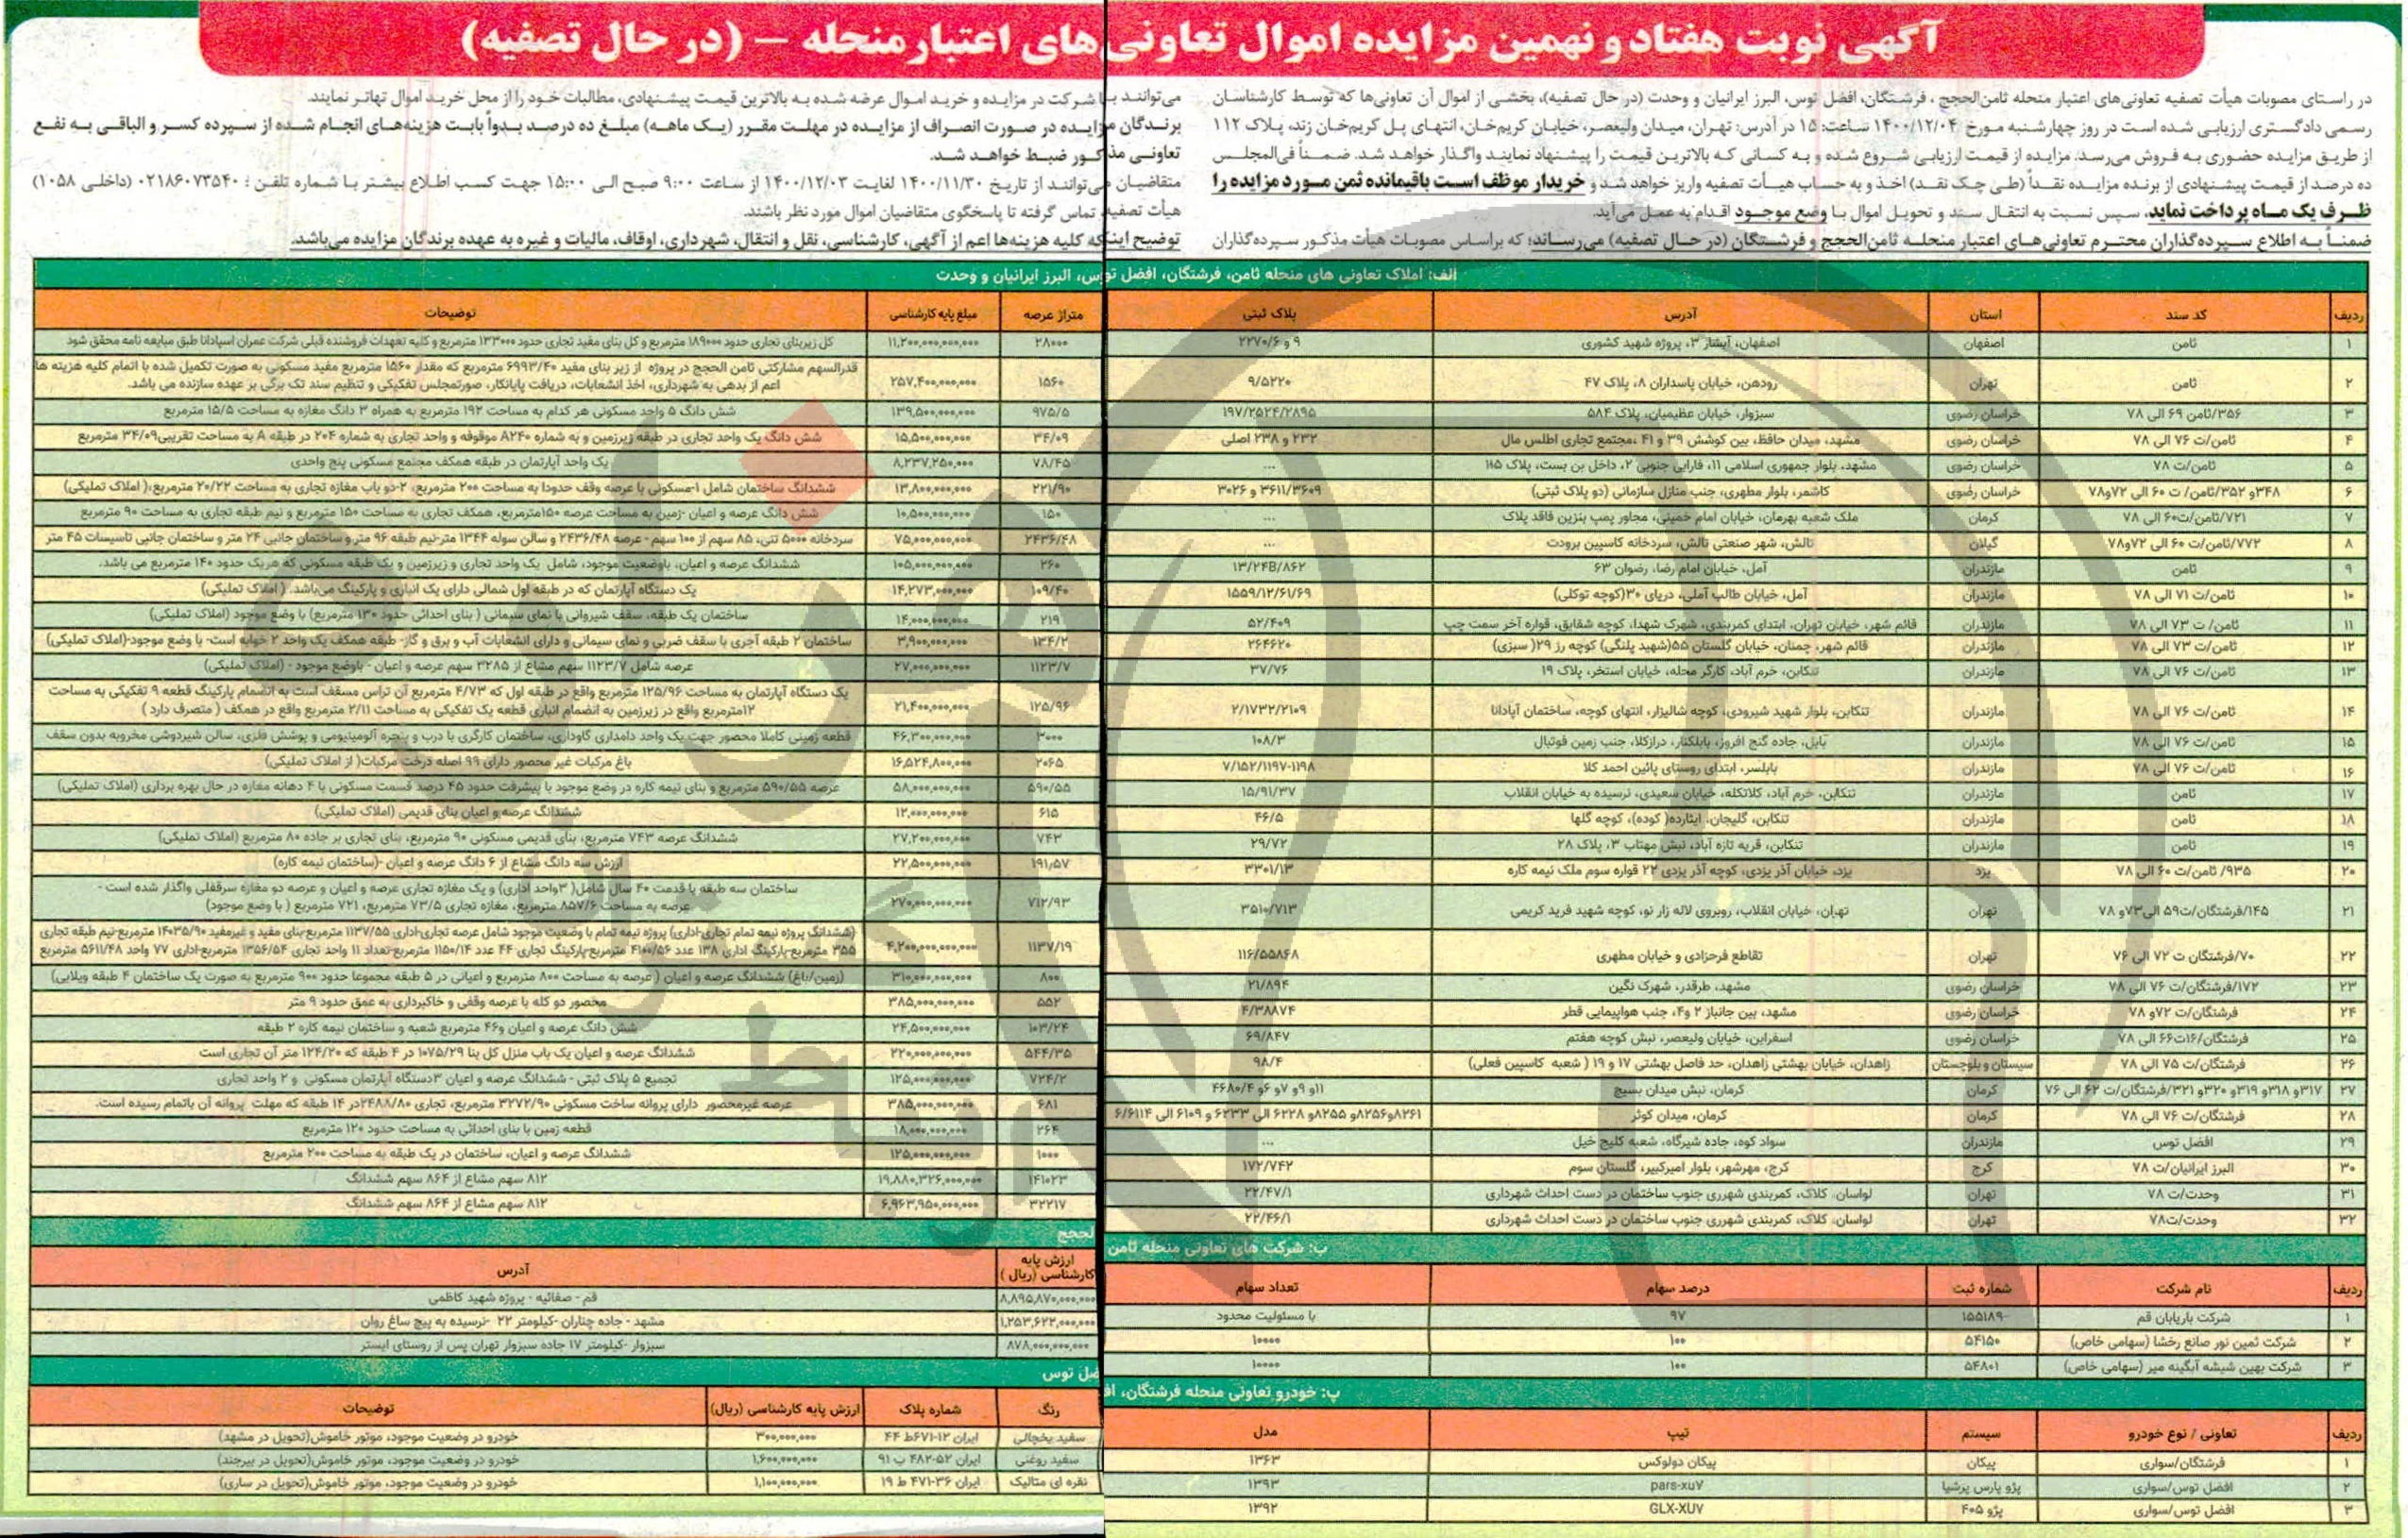 آگهی نوبت هفتاد و نهمین مزایده اموال تعاونی های اعتبار منحله – (در حال تصفیه)
در راستای مصوبات هیأت تصفیه تعاونی‌های اعتبار منحله ثامن‌الحجج، فرشتگان، افضل توس، البرز ایرانیان و وحدت (در حال تصفیه)، بخشی از اموال آن تعاونی‌ها که توسط کارشناسان
رسمی دادگستری ارزیابی شده است در روز چهارشنبه مورخ ۱۴۰۰/۱۲/۰۴ ساعت: ۱۵ در آدرس: تهران، میدان ولیعصر، خیابان کریم‌خان، انتهای پل کریم‌خان زند، پلاک ۱۱۲
از طریق مزایده حضوری به فروش می‌رسد. مزایده از قیمت ارزیابی شروع شده و به کسانی که بالاترین قیمت را پیشنهاد نمایند واگذار خواهد شد. ضمناً فی‌المجلس
ده درصد از قیمت پیشنهادی از برنده مزایده نقداً (طی چک نقد) اخذ و به حساب هیأت تصفیه واریز خواهد شد و خریدار موظف است باقیمانده ثمن مورد مزایده را
ظرف یک ماه پرداخت نماید، سپس نسبت به انتقال سند و تحویل اموال با وضع موجود اقدام به عمل می‌آید.
ضمناً به اطلاع سپرده‌گذاران محترم تعاونی‌های اعتبار منحله ثامن‌الحجج و فرشتگان (در حال تصفیه) می‌رساند؛ که براساس مصوبات هیأت مذکور سپرده‌گذاران
می‌توانند با شرکت در مزایده و خرید اموال عرضه شده به بالاترین قیمت پیشنهادی، مطالبات خود را از محل خرید اموال تهاتر نمایند.
برندگان مزایده در صورت انصراف از مزایده در مهلت مقرر (یک ماهه) مبلغ ده درصد بدواً بابت هزینه‌های انجام شده از سپرده کسر و الباقی به نفع
تعاونی مذکور ضبط خواهد شد.
متقاضیان می‌توانند از تاریخ ۱۴۰۰/۱۱/۳۰ لغایت ۱۴۰۰/۱۲/۰۳ از ساعت ۹:۰۰ صبح الی ۱۵:۰۰ جهت کسب اطلاع بیشتر با شماره تلفن : ۰۲۱۸۶۰۷۳۵۴۰ (داخلی ۱۰۵۸)
هیأت تصفیه تماس گرفته تا پاسخگوی متقاضیان اموال مورد نظر باشند.
توضیح اینکه کلیه هزینه‌ها اعم از آگهی، کارشناسی، نقل و انتقال، شهرداری، اوقاف، مالیات و غیره به عهده برندگان مزایده می‌باشد.
الف: املاک تعاونی های منحله ثامن، فرشتگان، افضل توس، البرز ایرانیان و وحدت
ردیف کد سند استان آدرس پلاک ثبتی متراژ عرصه مبلغ پایه کارشناسی توضیحات
۱ ثامن اصفهان اصفهان، آبشار ۳، پروژه شهید کشوری ۹ و ۲۲۷۰/۶ ۲۸۰۰۰ ۱۱,۲۰۰,۰۰۰,۰۰۰,۰۰۰ کل زیربنای تجاری حدود ۱۸۹۰۰۰ مترمربع و کل بنای مفید تجاری حدود ۱۳۳۰۰۰ مترمربع و کلیه تعهدات فروشنده قبلی شرکت عمران اسپادانا طبق مبایعه نامه محقق شود
۲ ثامن تهران رودهن، خیابان پاسداران ۸، پلاک ۴۷ ۹/۵۲۲۰ ۱۵۶۰ ۲۵۷,۴۰۰,۰۰۰,۰۰۰ قدرالسهم مشارکتی ثامن الحجج در پروژه از زیر بنای مفید ۶۹۹۳/۴۰ مترمربع که مقدار ۱۵۶۰ مترمربع مفید مسکونی به صورت تکمیل شده با اتمام کلیه هزینه ها
اعم از بدهی به شهرداری، اخذ انشعابات، دریافت پایانکار، صورتمجلس تفکیکی و تنظیم سند تک برگی بر عهده سازنده می باشد.
۳ ۳۵۶/ثامن ۶۹ الی ۷۸ خراسان رضوی سبزوار، خیابان عظیمیان، پلاک ۵۸۴ ۱۹۷/۲۵۲۴/۲۸۹۵ ۹۷۵/۵ ۱۳۹,۵۰۰,۰۰۰,۰۰۰ شش دانگ ۵ واحد مسکونی هر کدام به مساحت ۱۹۲ مترمربع به همراه ۳ دانگ مغازه به مساحت ۱۵/۵ مترمربع
۴ ثامن/ت ۷۶ الی ۷۸ خراسان رضوی مشهد، میدان حافظ، بین کوشش ۳۹ و ۴۱ ،مجتمع تجاری اطلس مال ۲۳۲ و ۲۳۸ اصلی ۳۴/۰۹ ۱۵,۵۰۰,۰۰۰,۰۰۰ شش دانگ یک واحد تجاری در طبقه زیرزمین و به شماره A۲۴۰ موقوفه و واحد تجاری به شماره ۲۰۴ در طبقه A به مساحت تقریبی ۳۴/۰۹ مترمربع
۵ ثامن/ت ۷۸ خراسان رضوی مشهد، بلوار جمهوری اسلامی ۱۱، فارابی جنوبی ۲، داخل بن بست، پلاک ۱۸۵ ... ۷۸/۴۵ ۸,۲۳۷,۲۵۰,۰۰۰ یک واحد آپارتمان در طبقه همکف مجتمع مسکونی پنج واحدی
۶ ۳۴۸و ۳۵۲/ثامن/ ت ۶۰ الی ۷۲و۷۸ خراسان رضوی کاشمر، بلوار مطهری، جنب منازل سازمانی (دو پلاک ثبتی) ۳۶۱۱/۳۶۰۹ و ۳۰۲۶ ۲۲۱/۹۰ ۱۳,۸۰۰,۰۰۰,۰۰۰ ششدانگ ساختمان شامل ۱-مسکونی با عرصه وقف حدودا به مساحت ۲۰۰ مترمربع، ۲-دو باب مغازه تجاری به مساحت ۲۰/۲۲ مترمربع.( املاک تملیکی)
۷ ۷۲۱/ثامن/ت۶۰ الی ۷۸ کرمان ملک شعبه بهرمان، خیابان امام خمینی، مجاور پمپ بنزین فاقد پلاک ... ۱۵۰ ۱۰,۵۰۰,۰۰۰,۰۰۰ شش دانگ عرصه و اعیان -زمین به مساحت عرصه ۱۵۰مترمربع، همکف تجاری به مساحت ۱۵۰ مترمربع و نیم طبقه تجاری به مساحت ۹۰ مترمربع
۸ ۷۷۲/ثامن/ت ۶۰ الی ۷۲و۷۸ گیلان تالش، شهر صنعتی تالش، سردخانه کاسپین برودت ... ۲۴۳۶/۴۸ ۷۵,۰۰۰,۰۰۰,۰۰۰ سردخانه ۵۰۰۰ تنی، ۸۵ سهم از ۱۰۰ سهم - عرصه ۲۴۳۶/۴۸ و سالن سوله ۱۳۴۴ متر-نیم طبقه ۹۶ متر و ساختمان جانبی ۲۴ متر و ساختمان جانبی تاسیسات ۴۵ متر
۹ ثامن مازندران آمل، خیابان امام رضا، رضوان ۶۳ ۱۳/۲۴B/۸۶۲ ۲۶۰ ۱۰۵,۰۰۰,۰۰۰,۰۰۰ ششدانگ عرصه و اعیان، باوضعیت موجود، شامل یک واحد تجاری و زیرزمین و یک طبقه مسکونی که هریک حدود ۱۴۰ مترمربع می باشد.
۱۰ ثامن/ت ۷۱ الی ۷۸ مازندران آمل، خیابان طالب آملی، دریای ۳۰(کوچه توکلی) ۱۵۵۹/۱۲/۶۱/۶۹ ۱۰۹/۴۰ ۱۴,۲۷۳,۰۰۰,۰۰۰ یک دستگاه آپارتمان که در طبقه اول شمالی دارای یک انباری و پارکینگ می‌باشد. ( املاک تملیکی)
۱۱ ثامن/ ت ۷۳ الی ۷۸ مازندران قائم شهر، خیابان تهران، ابتدای کمربندی، شهرک شهدا، کوچه شقایق، قواره آخر سمت چپ ۵۲/۴۰۹ ۲۱۹ ۱۴,۰۰۰,۰۰۰,۰۰۰ ساختمان یک طبقه، سقف شیروانی با نمای سیمانی ( بنای احداثی حدود ۱۳۰ مترمربع) با وضع موجود (املاک تملیکی)
۱۲ ثامن/ت ۷۳ الی ۷۸ مازندران قائم شهر، چمنان، خیابان گلستان ۵۵(شهید پلنگی) کوچه رز ۲۹( سبزی) ۲۶۴۶۲۰ ۱۳۴/۲ ۳,۹۰۰,۰۰۰,۰۰۰ ساختمان ۲ طبقه آجری با سقف ضربی و نمای سیمانی و دارای انشعابات آب و برق و گاز- طبقه همکف یک واحد ۲ خوابه است- با وضع موجود-(املاک تملیکی)
۱۳ ثامن/ت ۷۶ الی ۷۸ مازندران تنکابن، خرم آباد، کارگر محله، خیابان استخر، پلاک ۱۹ ۳۷/۷۶ ۱۱۲۳/۷ ۲۷,۰۰۰,۰۰۰,۰۰۰ عرصه شامل ۱۱۲۳/۷ سهم مشاع از ۳۲۸۵ سهم عرصه و اعیان - باوضع موجود - (املاک تملیکی)
۱۴ ثامن/ت ۷۶ الی ۷۸ مازندران تنکابن، بلوار شهید شیرودی، کوچه شالیزار، انتهای کوچه، ساختمان آپادانا ۲/۱۷۳۲/۲۱۰۹ ۱۲۵/۹۶ ۲۱,۴۰۰,۰۰۰,۰۰۰ یک دستگاه آپارتمان به مساحت ۱۲۵/۹۶ مترمربع واقع در طبقه اول که ۴/۷۳ مترمربع آن تراس مسقف است به انضمام پارکینگ قطعه ۹ تفکیکی به مساحت
۱۲مترمربع واقع در زیرزمین به انضمام انباری قطعه یک تفکیکی به مساحت ۲/۱۱ مترمربع واقع در همکف ( متصرف دارد )
۱۵ ثامن/ت ۷۶ الی ۷۸ مازندران بابل، جاده گنج افروز، بابلکنار، درازکلا، جنب زمین فوتبال ۱۰۸/۳ ۳۰۰۰ ۴۶,۳۰۰,۰۰۰,۰۰۰ قطعه زمینی کاملا محصور جهت یک واحد دامداری گاوداری، ساختمان کارگری با درب و پنجره آلومینیومی و پوشش فلزی، سالن شیردوشی مخروبه بدون سقف
۱۶ ثامن/ت ۷۶ الی ۷۸ مازندران بابلسر، ابتدای روستای پائین احمد کلا ۷/۱۵۲/۱۱۹۷-۱۱۹۸ ۲۰۶۵ ۱۶,۵۲۴,۸۰۰,۰۰۰ باغ مرکبات غیر محصور دارای ۹۹ اصله درخت مرکبات( از املاک تملیکی)
۱۷ ثامن مازندران تنکابن، خرم آباد، کلاتکله، خیابان سعیدی، نرسیده به خیابان انقلاب ۱۵/۹۱/۳۷ ۵۹۰/۵۵ ۵۸,۰۰۰,۰۰۰,۰۰۰ عرصه ۵۹۰/۵۵ مترمربع و بنای نیمه کاره در وضع موجود با پیشرفت حدود ۴۵ درصد قسمت مسکونی با ۴ دهانه مغازه در حال بهره برداری (املاک تملیکی)
۱۸ ثامن مازندران تنکابن، گلیجان، ایثارده( کوده)، کوچه گلها ۴۶/۵ ۶۱۵ ۱۲,۰۰۰,۰۰۰,۰۰۰ ششدانگ عرصه و اعیان بنای قدیمی (املاک تملیکی)
۱۹ ثامن مازندران تنکابن، قریه تازه آباد، نبش مهتاب ۳، پلاک ۲۸ ۲۹/۷۲ ۷۴۳ ۲۷,۲۰۰,۰۰۰,۰۰۰ ششدانگ عرصه ۷۴۳ مترمربع، بنای قدیمی مسکونی ۹۰ مترمربع، بنای تجاری بر جاده ۸۰ مترمربع (املاک تملیکی)
۲۰ ۹۳۵/ ثامن/ت ۶۰ الی ۷۸ یزد یزد، خیابان آذر یزدی، کوچه آذر یزدی ۲۲ قواره سوم ملک نیمه کاره ۳۳۰۱/۱۳ ۱۹۱/۵۷ ۲۲,۵۰۰,۰۰۰,۰۰۰ ارزش سه دانگ مشاع از ۶ دانگ عرصه و اعیان -(ساختمان نیمه کاره)
۲۱ ۱۴۵/فرشتگان/ت۵۹ الی۷۳و ۷۸ تهران تهران، خیابان انقلاب، روبروی لاله زار نو، کوچه شهید فرید کریمی ۳۵۱۰/۷۱۳ ۷۱۲/۹۳ ۲۷۰,۰۰۰,۰۰۰,۰۰۰ ساختمان سه طبقه با قدمت ۴۰ سال شامل( ۳واحد اداری) و یک مغازه تجاری عرصه و اعیان و عرصه دو مغازه سرقفلی واگذار شده است -
عرصه به مساحت ۸۵۷/۶ مترمربع، مغازه تجاری ۷۳/۵ مترمربع، ۷۲۱ مترمربع ( با وضع موجود)
۲۲ ۷۰/فرشتگان ت ۷۲ الی ۷۶ تهران تقاطع فرحزادی و خیابان مطهری ۱۱۶/۵۵۸۶۸ ۱۱۳۷/۱۹ ۴,۲۰۰,۰۰۰,۰۰۰,۰۰۰ (ششدانگ پروژه نیمه تمام تجاری-اداری) پروژه نیمه تمام با وضعیت موجود شامل عرصه تجاری-اداری ۱۱۳۷/۵۵ مترمربع-بنای مفید و غیرمفید ۱۴۰۳۵/۹۰ مترمربع-نیم طبقه تجاری
۳۵۵ مترمربع-پارکینگ اداری ۱۳۸ عدد ۴۱۰۰/۵۶ مترمربع-پارکینگ تجاری ۴۴ عدد ۱۱۵۰/۱۴ مترمربع-تعداد ۱۱ واحد تجاری ۱۳۵۶/۵۴ مترمربع-اداری ۷۷ واحد ۵۶۱۱/۴۸ مترمربع
۲۳ ۱۷۲/فرشتگان/ت ۷۶ الی ۷۸ خراسان رضوی مشهد، طرقدر، شهرک نگین ۲۱/۸۹۴ ۸۰۰ ۳۱۰,۰۰۰,۰۰۰,۰۰۰ (زمین/باغ) ششدانگ عرصه و اعیان ( عرصه به مساحت ۸۰۰ مترمربع و اعیانی در ۵ طبقه مجموعا حدود ۹۰۰ مترمربع به صورت یک ساختمان ۴ طبقه ویلایی)
۲۴ فرشتگان/ت ۷۲و ۷۸ خراسان رضوی مشهد، بین جانباز ۲ و۴، جنب هواپیمایی قطر ۴/۳۸۸۷۴ ۵۵۲ ۳۸۵,۰۰۰,۰۰۰,۰۰۰ محصور دو کله با عرصه وقفی و خاکبرداری به عمق حدود ۹ متر
۲۵ فرشتگان/۱۶ت۶۶ الی ۷۸ خراسان رضوی اسفراین، خیابان ولیعصر، نبش کوچه هفتم ۶۹/۸۴۷ ۱۰۳/۲۴ ۲۴,۵۰۰,۰۰۰,۰۰۰ شش دانگ عرصه و اعیان و۴۶ مترمربع شعبه و ساختمان نیمه کاره ۲ طبقه
۲۶ فرشتگان/ت ۷۵ الی ۷۸ سیستان و بلوچستان زاهدان، خیابان بهشتی زاهدان، حد فاصل بهشتی ۱۷ و ۱۹ ( شعبه کاسپین فعلی) ۹۸/۴ ۵۴۴/۳۵ ۲۲۰,۰۰۰,۰۰۰,۰۰۰ ششدانگ عرصه و اعیان یک باب منزل کل بنا ۱۰۷۵/۲۹ در ۴ طبقه که ۱۲۴/۲۰ متر آن تجاری است
۲۷ ۳۱۷و ۳۱۸و ۳۱۹و ۳۲۰و ۳۲۱/فرشتگان/ت ۶۲ الی ۷۶ کرمان کرمان، نبش میدان بسیج ۱۱و ۹و ۷و ۶و ۴۶۸۰/۴ ۷۲۴/۲ ۱۲۵,۰۰۰,۰۰۰,۰۰۰ تجمیع ۵ پلاک ثبتی - ششدانگ عرصه و اعیان ۳دستگاه آپارتمان مسکونی و ۲ واحد تجاری
۲۸ فرشتگان/ت ۷۶ الی ۷۸ کرمان کرمان، میدان کوثر ۸۲۶۱و۸۲۵۶و ۸۲۵۵و ۶۲۲۸ الی ۶۲۳۳ و ۶۱۰۹ الی ۶/۶۱۱۴ ۶۸۱ ۳۸۵,۰۰۰,۰۰۰,۰۰۰ عرصه غیرمحصور دارای پروانه ساخت مسکونی ۳۲۷۲/۹۰ مترمربع، تجاری ۲۴۸۸/۸۰در ۱۴ طبقه که مهلت پروانه آن باتمام رسیده است.
۲۹ افضل توس مازندران سواد کوه، جاده شیرگاه، شعبه کلیج خیل ... ۲۶۴ ۱۸,۰۰۰,۰۰۰,۰۰۰ قطعه زمین با بنای احداثی به مساحت حدود ۱۲۰ مترمربع
۳۰ البرز ایرانیان/ت ۷۸ کرج کرج، مهرشهر، بلوار امیرکبیر، گلستان سوم ۱۷۲/۷۴۲ ۱۰۰۰ ۱۲۵,۰۰۰,۰۰۰,۰۰۰ ششدانگ عرصه و اعیان، ساختمان در یک طبقه به مساحت ۲۰۰ مترمربع
۳۱ وحدت/ت ۷۸ تهران لواسان، کلاک، کمربندی شهرری جنوب ساختمان در دست احداث شهرداری ۲۲/۴۷/۱ ۱۴۱۰۲۳ ۱۹,۸۸۰,۳۲۶,۰۰۰,۰۰۰ ۸۱۲ سهم مشاع از ۸۶۴ سهم ششدانگ
۳۲ وحدت/ت۷۸ تهران لواسان، کلاک، کمربندی شهرری جنوب ساختمان در دست احداث شهرداری ۲۲/۴۶/۱ ۳۲۲۱۷ ۶,۹۶۳,۹۵۰,۰۰۰,۰۰۰ ۸۱۲ سهم مشاع از ۸۶۴ سهم ششدانگ
ب: شرکت های تعاونی منحله ثامن الحجج
ردیف نام شرکت شماره ثبت درصد سهام تعداد سهام ارزش پایه کارشناسی (ریال ) آدرس
۱ شرکت باریابان قم ۱۵۵۱۸۹ ۹۷ با مسئولیت محدود ۸,۸۹۵,۸۷۰,۰۰۰,۰۰۰ قم - صفائیه - پروژه شهید کاظمی
۲ شرکت ثمین نور صانع رخشا (سهامی خاص) ۵۴۱۵۰ ۱۰۰ ۱۰۰۰۰ ۱,۲۵۳,۶۲۲,۰۰۰,۰۰۰ مشهد - جاده چناران -کیلومتر ۲۲ -نرسیده به پیچ ساغ روان
۳ شرکت بهین شیشه آبگینه میر (سهامی خاص) ۵۴۸۰۱ ۱۰۰ ۱۰۰۰۰ ۸۷۸,۰۰۰,۰۰۰,۰۰۰ سبزوار -کیلومتر ۱۷ جاده سبزوار تهران پس از روستای ایستر
پ: خودرو تعاونی منحله فرشتگان، افضل توس
ردیف تعاونی / نوع خودرو سیستم تیپ مدل رنگ شماره پلاک ارزش پایه کارشناسی (ریال) توضیحات
۱ فرشتگان/سواری پیکان پیکان دولوکس ۱۳۶۳ سفید یخچالی ایران ۱۲-۶۷۱ط ۴۴ ۳۰۰,۰۰۰,۰۰۰ خودرو در وضعیت موجود، موتور خاموش(تحویل در مشهد)
۲ افضل توس/سواری پژو پارس پرشیا pars-xu۷ ۱۳۹۳ سفید روغنی ایران ۵۲-۴۸۲ ب ۹۱ ۱,۶۰۰,۰۰۰,۰۰۰ خودرو در وضعیت موجود، موتور خاموش(تحویل در بیرجند)
۳ افضل توس/سواری پژو ۴۰۵ GLX-XU۷ ۱۳۹۲ نقره ای متالیک ایران ۳۶-۴۷۱ ط ۱۹ ۱,۱۰۰,۰۰۰,۰۰۰ خودرو در وضعیت موجود، موتور خاموش(تحویل در ساری)